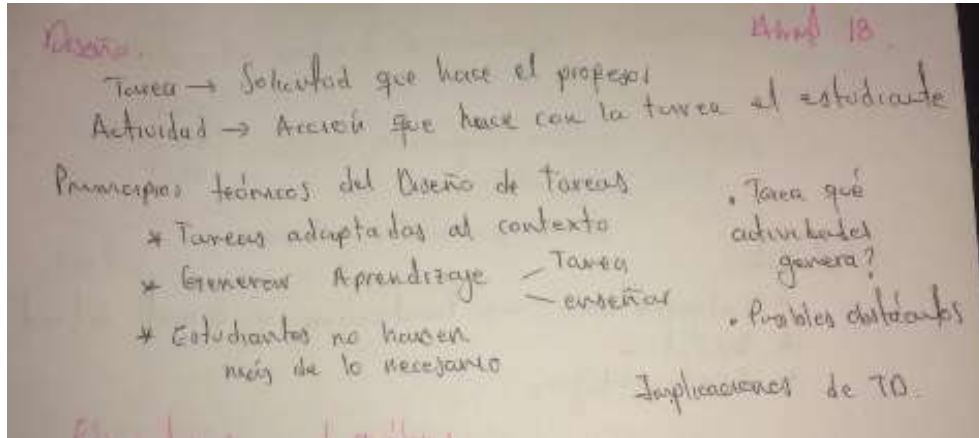 Diseño.
Abril 18.
Tarea → Solicitud que hace el profesor
Actividad → Acción que hace con la tarea el estudiante
Principios teóricos del Diseño de Tareas
* Tareas adaptadas al contexto
* Generar Aprendizaje – Tarea
– enseñar
* Estudiantes no hacen
más de lo necesario
• Tarea qué
actividades
genera?
• Posibles obstáculos
Implicaciones de TD.